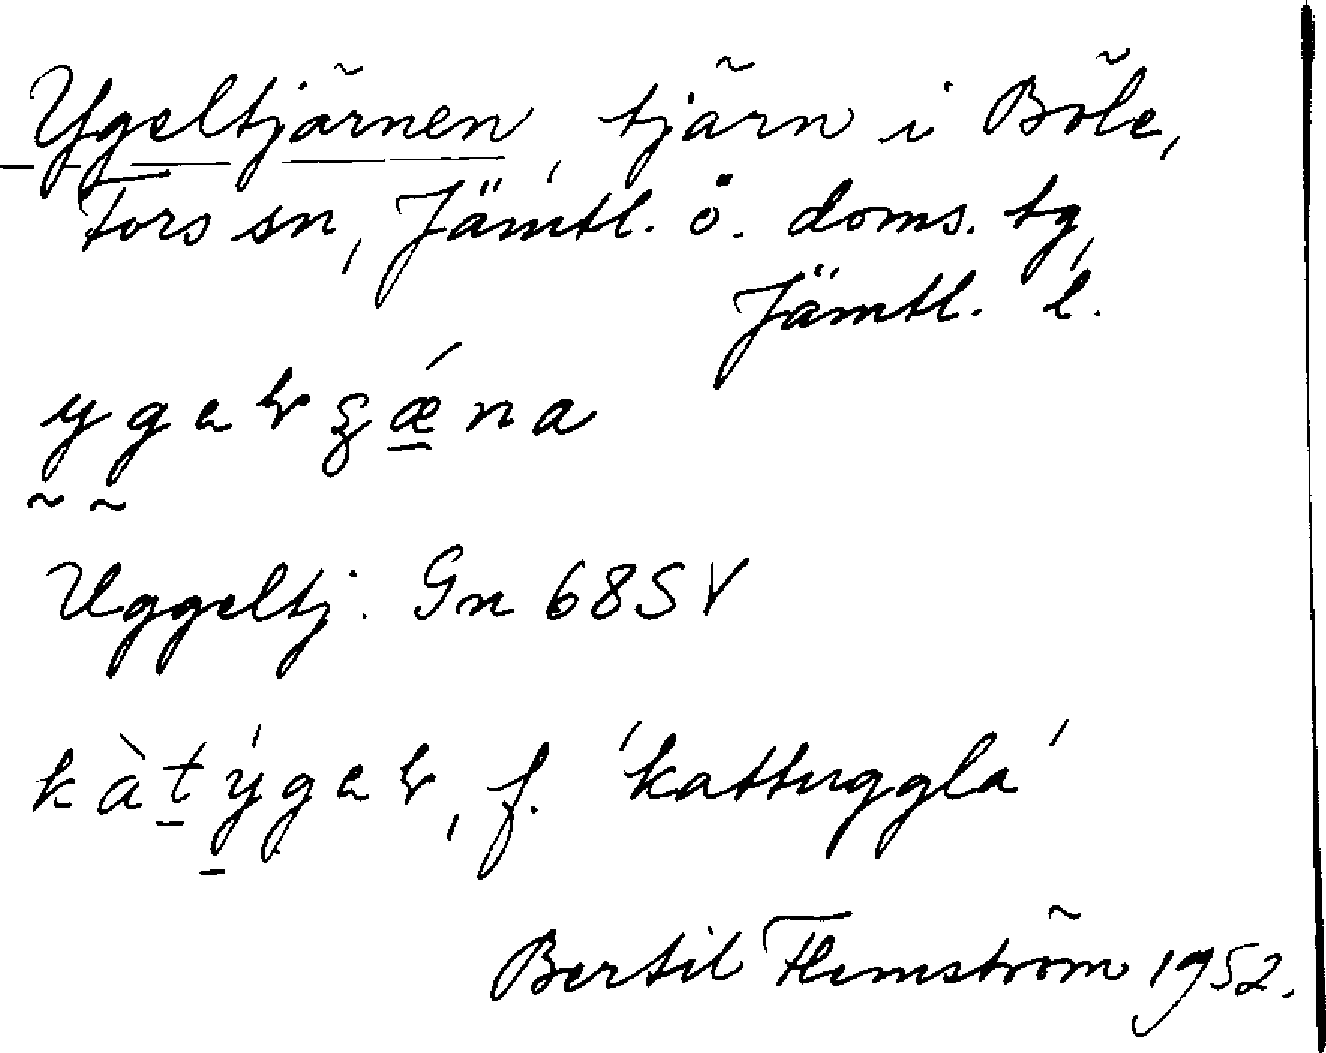 Ygeltjärnen, tjärn i Böle,
Fors sn, Jämtl. ö. doms. tg,
Jämtl. l.
Uggeltj. Gn 68SV
f. 'kattuggla'
Bertil Flemström 1952.